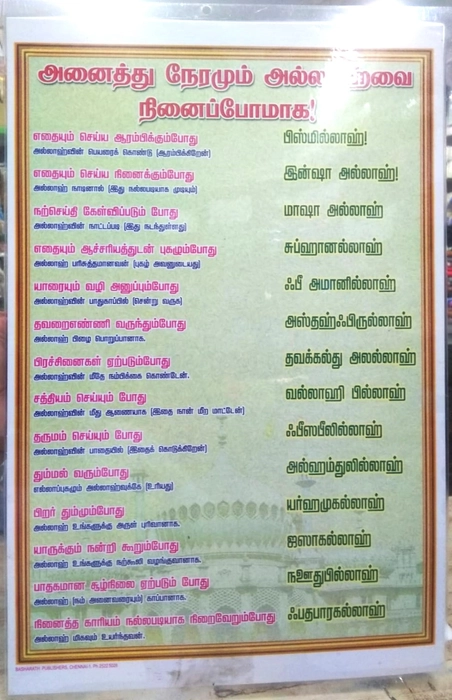 அனைத்து நேரமும் அல்லாஹ்வை
நினைப்போமாக!
எதையும் செய்ய ஆரம்பிக்கும்போது பிஸ்மில்லாஹ்!
அல்லாஹ்வின் பெயரைக் கொண்டு (ஆரம்பிக்கிறேன்)
எதையும் செய்ய நினைக்கும்போது இன்ஷா அல்லாஹ்!
அல்லாஹ் நாடினால் (இது நல்லபடியாக முடியும்)
நற்செய்தி கேள்விப்படும் போது மாஷா அல்லாஹ்
அல்லாஹ்வின் நாட்டப்படி (இது நடந்துள்ளது)
எதையும் ஆச்சரியத்துடன் புகழும்போது சுப்ஹானல்லாஹ்
அல்லாஹ் பரிசுத்தமானவன் (புகழ் அவனுடையது)
யாரையும் வழி அனுப்பும்போது ஃபீ அமானில்லாஹ்
அல்லாஹ்வின் பாதுகாப்பில் (சென்று வருக)
தவறைஎண்ணி வருந்தும்போது அஸ்தஹ்ஃபிருல்லாஹ்
அல்லாஹ் பிழை பொறுப்பானாக.
பிரச்சினைகள் ஏற்படும்போது தவக்கல்து அலல்லாஹ்
அல்லாஹ்வின் மீதே நம்பிக்கை கொண்டேன்.
சத்தியம் செய்யும் போது வல்லாஹி பில்லாஹ்
அல்லாஹ்வின் மீது ஆணையாக (இதை நான் மீற மாட்டேன்)
தருமம் செய்யும் போது ஃபீஸபீலில்லாஹ்
அல்லாஹ்வின் பாதையில் (இதைக் கொடுக்கிறேன்)
தும்மல் வரும்போது அல்ஹம்துலில்லாஹ்
எல்லாப்புகழும் அல்லாஹ்வுக்கே (உரியது)
பிறர் தும்மும்போது யர்ஹமுகல்லாஹ்
அல்லாஹ் உங்களுக்கு அருள் புரிவானாக.
யாருக்கும் நன்றி கூறும்போது ஜஸாகல்லாஹ்
அல்லாஹ் உங்களுக்கு நற்கூலி வழங்குவானாக.
பாதகமான சூழ்நிலை ஏற்படும் போது நஊதுபில்லாஹ்
அல்லாஹ் (நம் அனைவரையும்) காப்பானாக.
நினைத்த காரியம் நல்லபடியாக நிறைவேறும்போது ஃபதபாரகல்லாஹ்
அல்லாஹ் மிகவும் உயர்ந்தவன்.